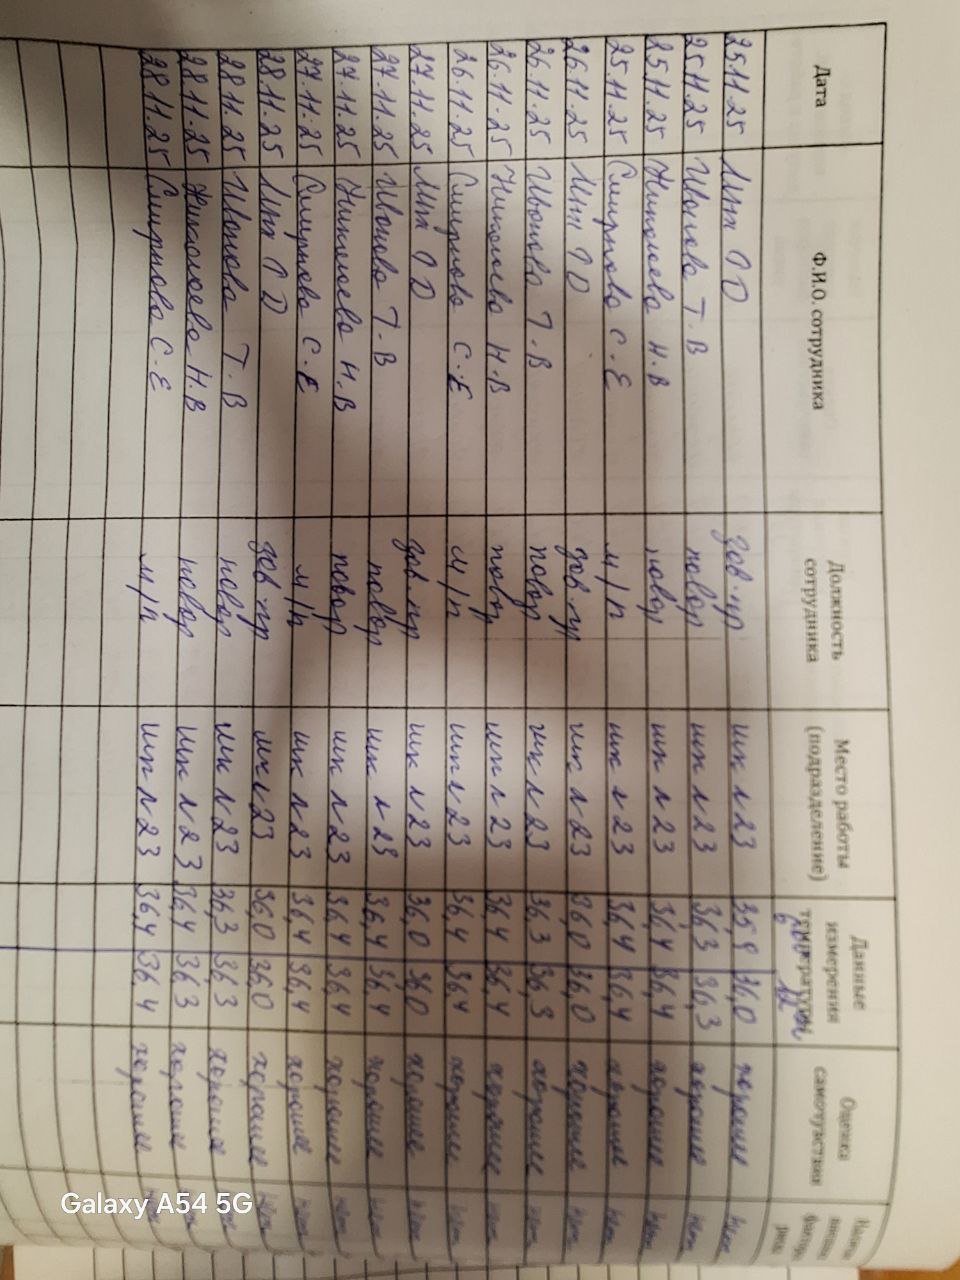 Дата Ф.И.О. сотрудника Должность сотрудника Место работы (подразделение) Данные измерения температуры Оценка самочувствия
25.11.25 Мин О Д зав.пр шк л 23 35,9 36,0 хорошее нет
25.11.25 Иванова Т.В повар шк л 23 36,3 36,3 хорошее нет
25.11.25 Николаева Н.В повар шк л 23 36,4 36,4 хорошее нет
25.11.25 Смирнова С.Е м/п шк л 23 36,4 36,4 хорошее нет
26.11.25 Мин О Д зав.пр шк л 23 36,0 36,0 хорошее нет
26.11.25 Иванова Т.В повар шк л 23 36,3 36,3 хорошее нет
26.11.25 Николаева Н.В повар шк л 23 36,4 36,4 хорошее нет
26.11.25 Смирнова С.Е м/п шк л 23 36,4 36,4 хорошее нет
27.11.25 Мин О Д зав.пр шк л 23 36,0 36,0 хорошее нет
27.11.25 Иванова Т.В повар шк л 23 36,4 36,4 хорошее нет
27.11.25 Николаева Н.В повар шк л 23 36,4 36,4 хорошее нет
27.11.25 Смирнова С.Е м/п шк л 23 36,4 36,4 хорошее нет
28.11.25 Мин О Д зав.пр шк л 23 36,0 36,0 хорошее нет
28.11.25 Иванова Т.В повар шк л 23 36,3 36,3 хорошее
28.11.25 Николаева Н.В повар шк л 23 36,4 36,3 хорошее
28.11.25 Смирнова С.Е м/п шк л 23 36,4 36,4 хорошее
Galaxy A54 5G